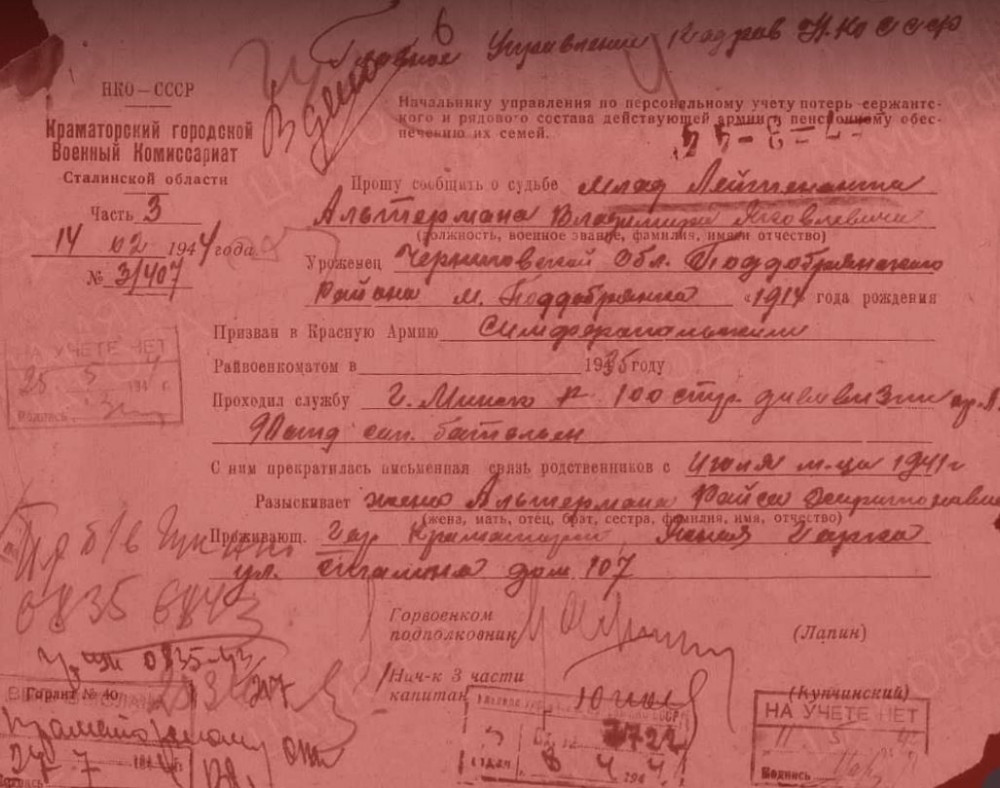 6
Главное Управление Кадров Н.К.О СССР
НКО—СССР
Краматорский городской
Военный Комиссариат
Сталинской области
Часть 3
14 02 1944 года.
№ 3/407
Начальнику управления по персональному учету потерь сержантс-
кого и рядового состава действующей армии и пенсионному обес-
печению их семей.
Прошу сообщить о судьбе млад Лейтенанта
Альтермана Владимира Яковлевича
(должность, военное звание, фамилия, имя и отчество)
Уроженец Черниговской Обл. Поддобрянского
Района м. Поддобрянка «1914 года рождения
Призван в Красную Армию Симферопольским
Райвоенкоматом в 1935 году
Проходил службу г. Минск 100 стр. дивизии
90 отд сап. батальон
С ним прекратилась письменная связь родственников с Июля м-ца 1941г
Разыскивает жена Альтермана Раиса
(жена, мать, отец, брат, сестра, фамилия, имя, отчество)
Проживающ. гор Краматорск,
ул. Сталина дом 107
НА УЧЕТЕ НЕТ
25 5 194 г.
Подпись
0835
Горвоенком
подполковник (Лапин)
Нач-к 3 части
капитан (Купчинский)
Гарант № 40
24 7
8 4 194
НА УЧЕТЕ НЕТ
Подпись